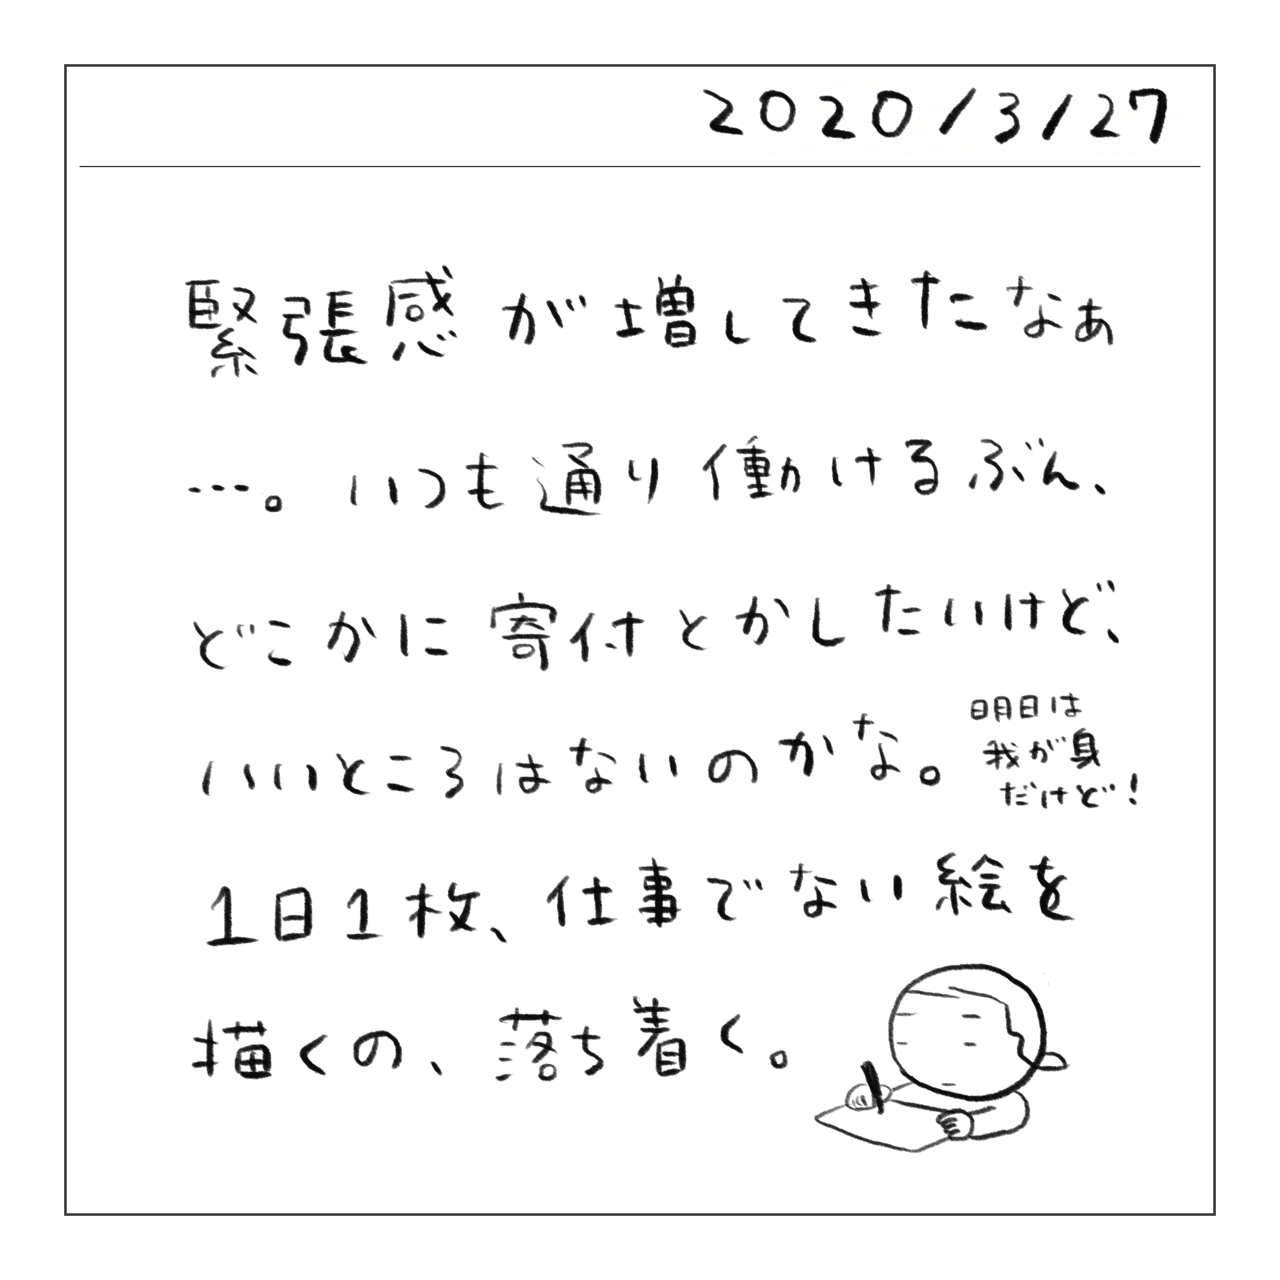 2020/3/27
緊張感が増してきたなぁ
…。いつも通り働けるぶん、
どこかに寄付とかしたいけど、
いいところはないのかな。
明日は
我が身
だけど!
1日1枚、仕事でない絵を
描くの、落ち着く。